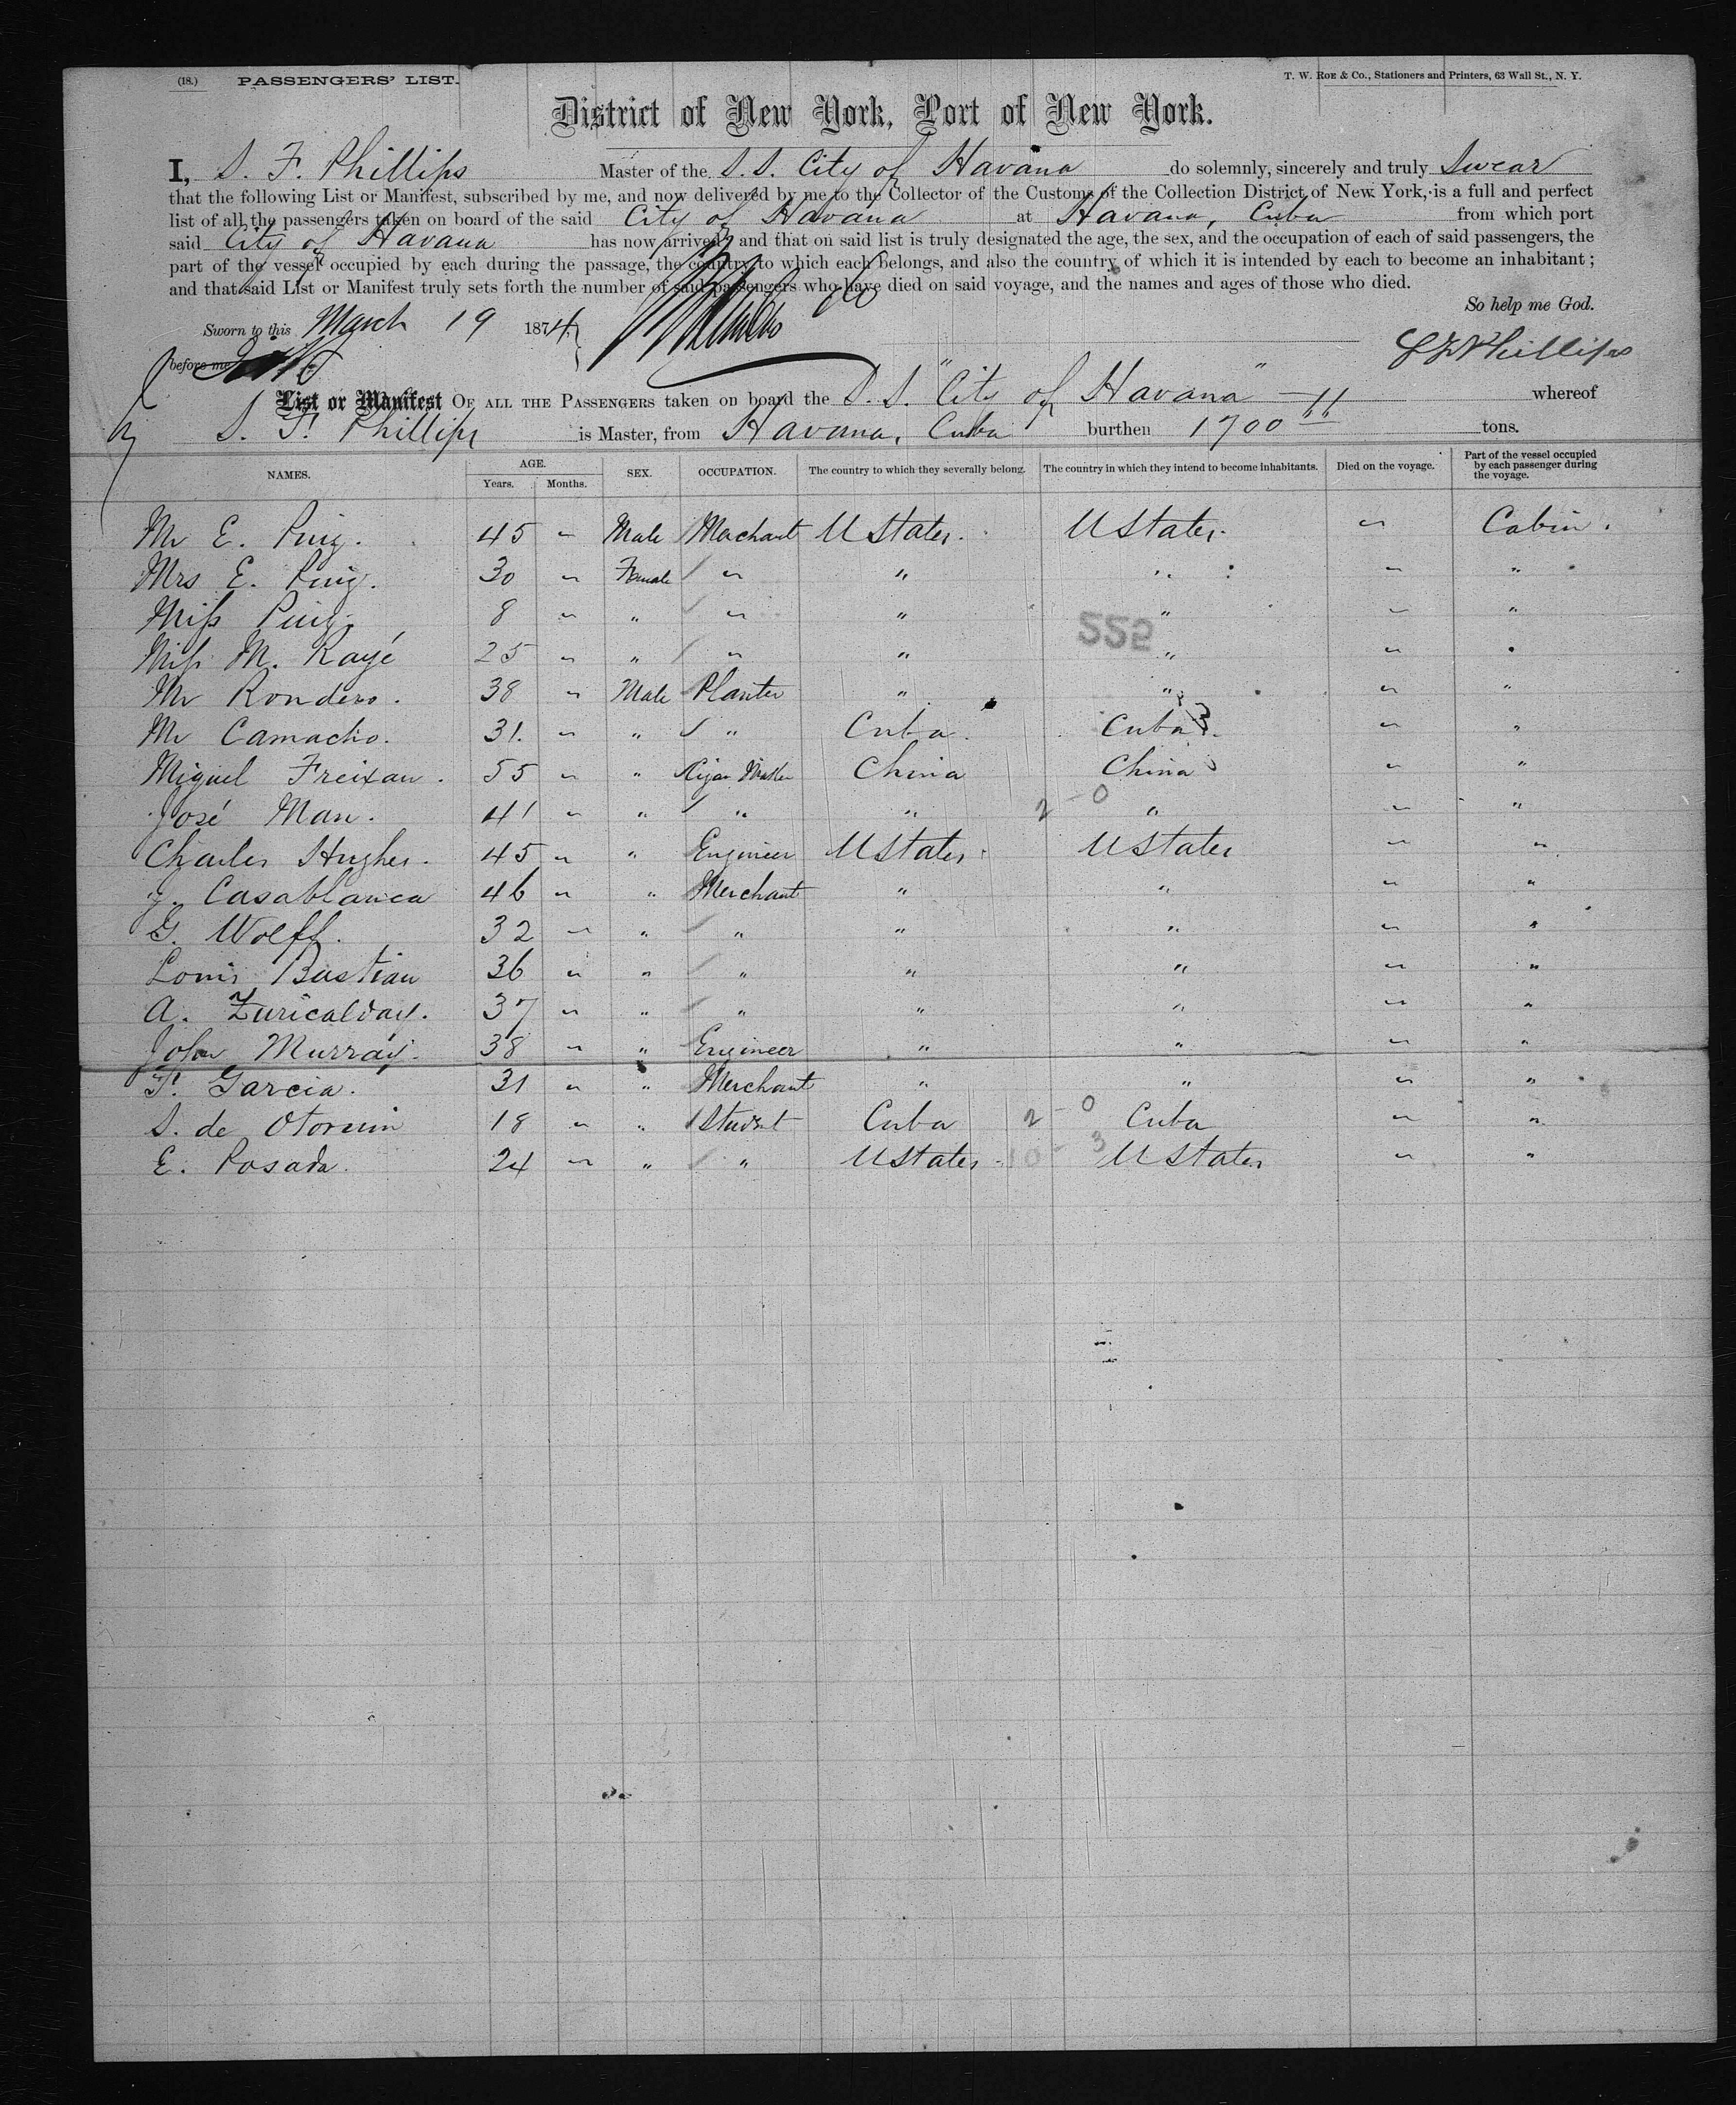 (18.) PASSENGERS' LIST. T. W. ROE & CO., Stationers and Printers, 63 Wall St., N. Y.
District of New York, Port of New York.
I, S. F. Phillips Master of the S. S. City of Havana do solemnly, sincerely and truly Swear
that the following List or Manifest, subscribed by me, and now delivered by me to the Collector of the Customs of the Collection District of New York, is a full and perfect
list of all the passengers taken on board of the said City of Havana at Havana, Cuba from which port
said City of Havana has now arrived; and that on said list is truly designated the age, the sex, and the occupation of each of said passengers, the
part of the vessel occupied by each during the passage, the country to which each belongs, and also the country of which it is intended by each to become an inhabitant;
and that said List or Manifest truly sets forth the number of said passengers who have died on said voyage, and the names and ages of those who died.
So help me God.
Sworn to this March 19 1874
before me S F Phillips
List or Manifest OF ALL THE PASSENGERS taken on board the S. S. "City of Havana" whereof
S. F. Phillips is Master, from Havana, Cuba burthen 1700 tons.
NAMES. AGE. Years. Months. SEX. OCCUPATION. The country to which they severally belong. The country in which they intend to become inhabitants. Died on the voyage. Part of the vessel occupied by each passenger during the voyage.
Mr E. Puig. 45 " Male Merchant U States. U States. " Cabin.
Mrs E. Puig. 30 " Female " " " " "
Miss Puig. 8 " " " " " " "
552
Miss M. Rayé 25 " " " " " " "
Mr Rondero. 38 " Male Planter " " " "
Mr Camacho. 31. " " " Cuba. Cuba. 3 " "
Miguel Freixau. 55 " " Cigar Maker China China " "
José Man. 41 " " " " 2-0 " " "
Charles Hughes. 45 " " Engineer U States. U States " "
J. Casablanca 46 " " Merchant " " " "
G. Wolff. 32 " " " " " " "
Louis Bastian 36 " " " " " " "
A. Zuricalday. 37 " " " " " " "
John Murray. 38 " " Engineer " " " "
F. Garcia. 31 " " Merchant " " " "
S. de 18 " " Student Cuba 2-0 Cuba " "
E. Posada. 24 " " " U States. 10-3 U States " "